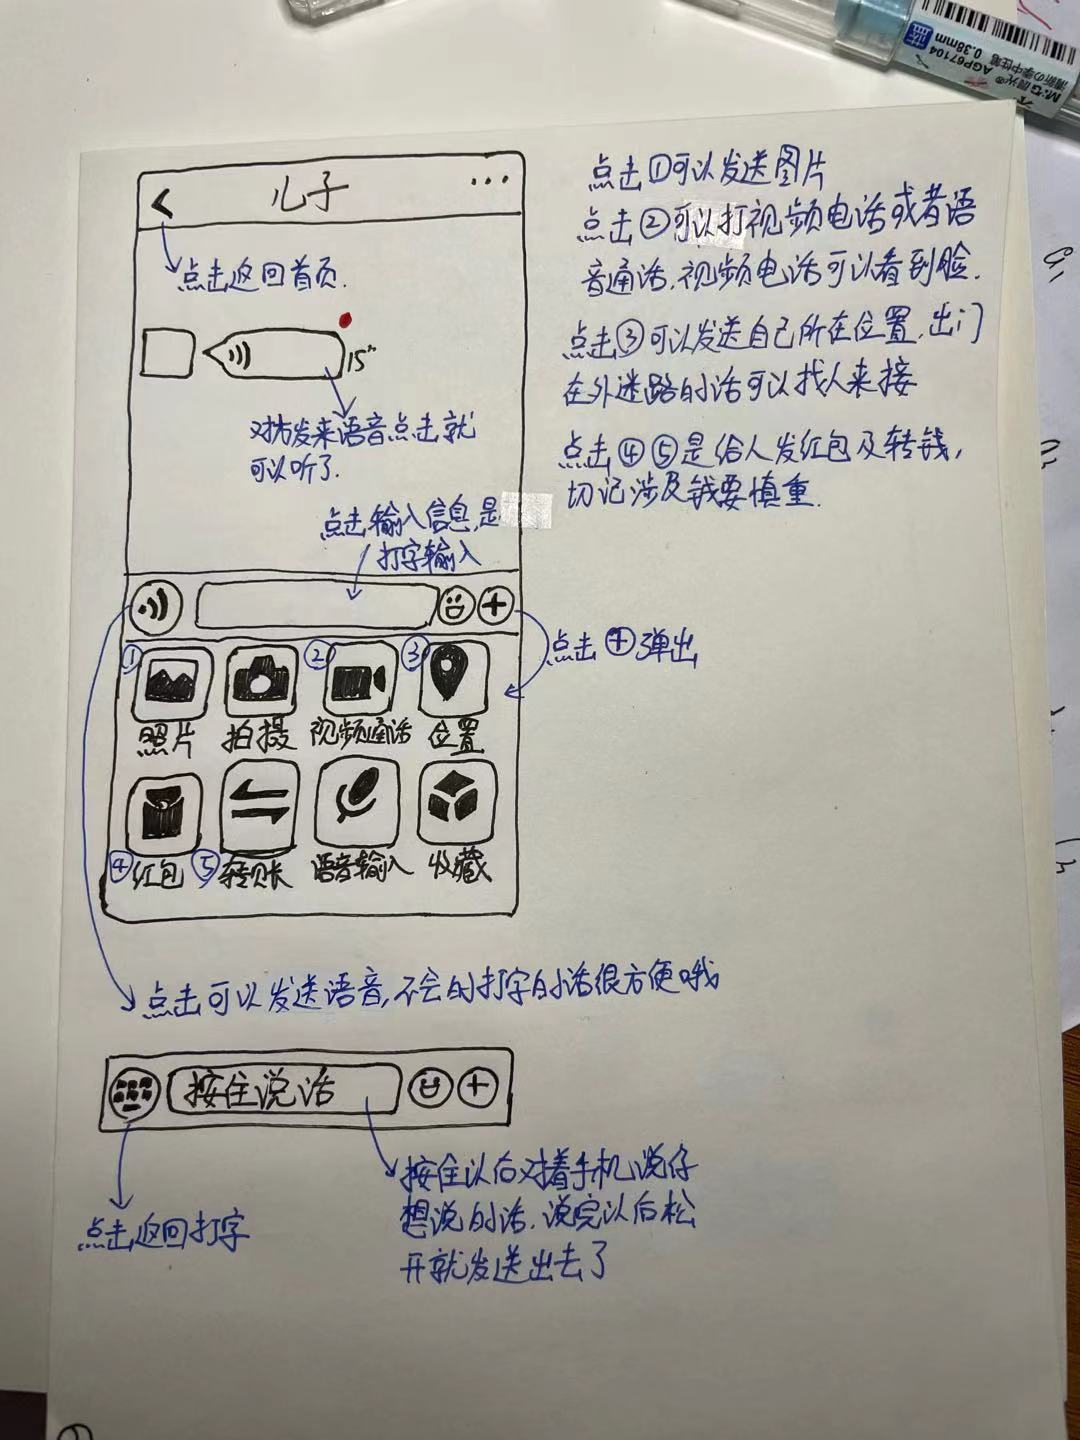 M&G 晨光®
AGP67104
0.38mm
蓝
儿子
...
点击返回首页.
15"
对方发来语音点击就
可以听了.
点击输入信息,是
打字输入
点击①可以发送图片
点击②可以打视频电话或者语
音通话.视频电话可以看到脸.
点击③可以发送自己所在位置.出门
在外迷路的话可以找人来接
点击④⑤是给人发红包及转钱,
切记涉及钱要慎重.
点击⊕弹出
① ② ③
照片 拍摄 视频通话 位置
④红包 ⑤转账 语音输入 收藏
点击可以发送语音,不会的打字的话很方便哦
按住说话
点击返回打字
按住以后对着手机说仔
想说的话.说完以后松
开就发送出去了